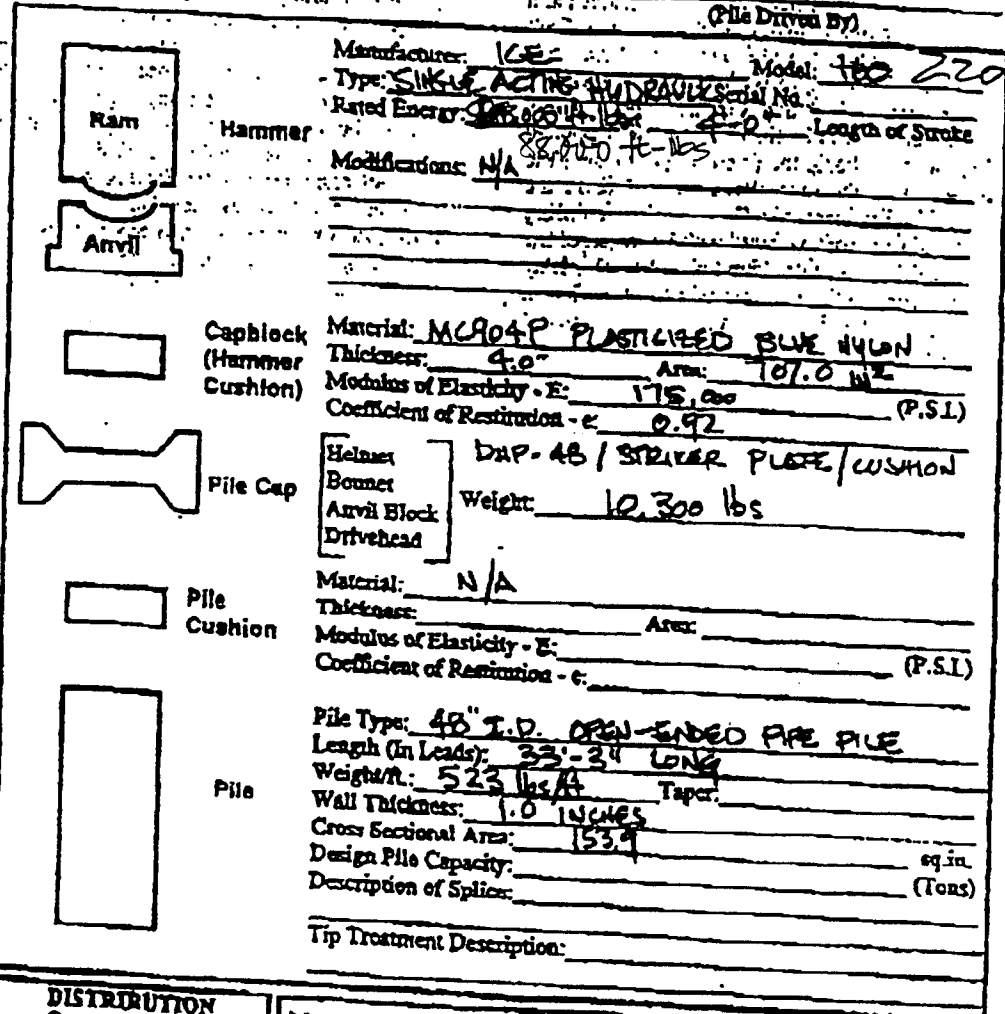 (Pile Driven By)
Manufacturer: ICE Model: 220
Type: SINGLE ACTING HYDRAULIC Serial No.
Rated Energy: 4'-0" Length of Stroke
88,000 ft-lbs
Ram
Hammer
Modifications: N/A
Anvil
Capblock (Hammer Cushion)
Material: MC904P PLASTICIZED BLUE NYLON
Thickness: 4.0" Area: 707.0 in²
Modulus of Elasticity - E: 175,000 (P.S.I.)
Coefficient of Restitution - e 0.92
Pile Cap
Helmet
Bonnet
Anvil Block
Drivehead
DHP-48 / STRIKER PLATE / CUSHION
Weight: 10,300 lbs
Pile Cushion
Material: N/A
Thickness: Area:
Modulus of Elasticity - E: (P.S.I.)
Coefficient of Restitution - e:
Pile
Pile Type: 48" I.D. OPEN-ENDED PIPE PILE
Length (In Leads): 33'-3" LONG
Weight/ft.: 523 lbs/ft Taper:
Wall Thickness: 1.0 INCHES
Cross Sectional Area: 153.9 sq.in.
Design Pile Capacity: (Tons)
Description of Splice:
Tip Treatment Description:
DISTRIBUTION